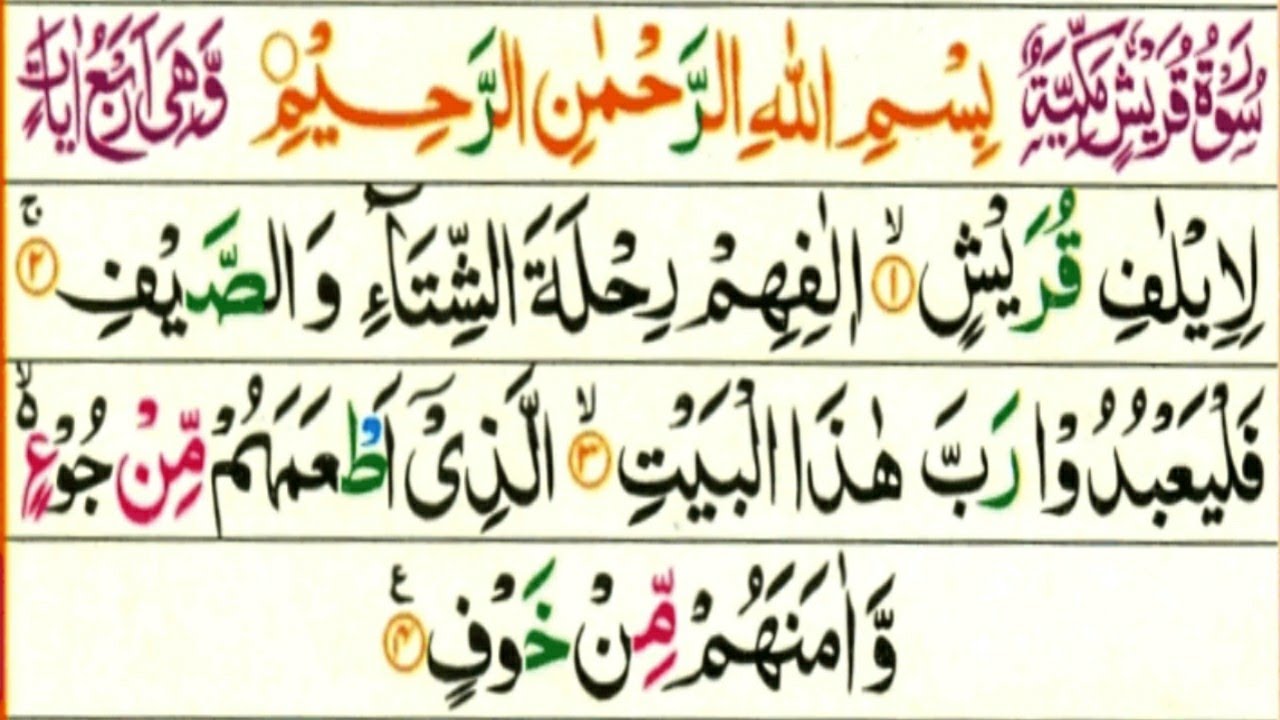 سُوْرَةُ قُرَيْشٍ مَّكِّيَّةٌ بِسْمِ اللهِ الرَّحْمٰنِ الرَّحِيْمِ وَّهِىَ اَرْبَعُ اٰيَاتٍ
لِاِيْلٰفِ قُرَيْشٍ ۙ﴿۱﴾ اٖلٰفِهِمْ رِحْلَةَ الشِّتَآءِ وَالصَّيْفِ ۚ﴿۲﴾
فَلْيَعْبُدُوْا رَبَّ هٰذَا الْبَيْتِ ۙ﴿۳﴾ الَّذِىْۤ اَطْعَمَهُمْ مِّنْ جُوْعٍ ۙ۬
وَّاٰمَنَهُمْ مِّنْ خَوْفٍ ﴿۴﴾ ع